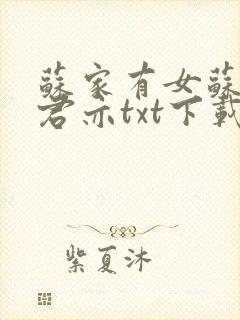 蘇家有女蘇
君亦txt下載
紫夏沐